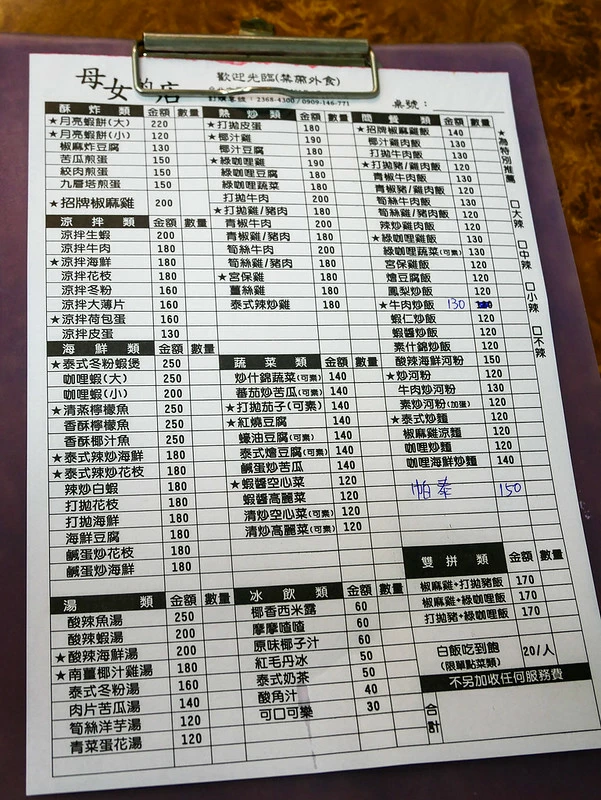 母女的店
歡迎光臨(禁帶外食)
訂購專線：2368-4300 / 0909-146-771
桌號：
酥炸類 金額 數量
★月亮蝦餅(大) 220
★月亮蝦餅(小) 120
椒麻炸豆腐 130
苦瓜煎蛋 150
絞肉煎蛋 150
九層塔煎蛋 150
★招牌椒麻雞 200
涼拌類 金額 數量
涼拌生蝦 200
涼拌牛肉 180
★涼拌海鮮 180
涼拌花枝 180
涼拌冬粉 160
涼拌大薄片 160
★涼拌荷包蛋 160
涼拌皮蛋 130
海鮮類 金額 數量
★泰式冬粉蝦煲 250
咖哩蝦(大) 250
咖哩蝦(小) 200
★清蒸檸檬魚 250
香酥檸檬魚 250
香酥椰汁魚 250
★泰式辣炒海鮮 180
★泰式辣炒花枝 180
辣炒白蝦 180
打拋花枝 180
打拋海鮮 180
海鮮豆腐 180
鹹蛋炒花枝 180
鹹蛋炒海鮮 180
湯類 金額 數量
酸辣魚湯 250
酸辣蝦湯 200
★酸辣海鮮湯 200
★南薑椰汁雞湯 180
泰式冬粉湯 160
肉片苦瓜湯 140
筍絲洋芋湯 120
青菜蛋花湯 120
熱炒類 金額 數量
★打拋皮蛋 180
★椰汁雞 190
椰汁豆腐 180
★綠咖哩雞 190
綠咖哩豆腐 180
綠咖哩蔬菜 180
打拋牛肉 200
★打拋雞/豬肉 180
青椒牛肉 200
青椒雞/豬肉 180
筍絲牛肉 200
筍絲雞/豬肉 180
★宮保雞 180
薑絲雞 180
泰式辣炒雞 180
蔬菜類 金額 數量
炒什錦蔬菜(可素) 140
蕃茄炒苦瓜(可素) 140
★打拋茄子(可素) 140
★紅燒豆腐 140
蠔油豆腐(可素) 140
泰式燴豆腐(可素) 140
鹹蛋炒苦瓜 140
★蝦醬空心菜 120
蝦醬高麗菜 120
清炒空心菜(可素) 120
清炒高麗菜(可素) 120
冰飲類 金額 數量
椰香西米露 60
摩摩喳喳 60
原味椰子汁 60
紅毛丹冰 50
泰式奶茶 50
酸角汁 40
可口可樂 30
簡餐類 金額 數量
★招牌椒麻雞飯 140
椰汁雞肉飯 130
打拋牛肉飯 130
★打拋豬/雞肉飯 120
青椒牛肉飯 130
青椒豬/雞肉飯 120
筍絲牛肉飯 130
筍絲雞/豬肉飯 120
辣炒雞肉飯 120
★綠咖哩雞飯 120
綠咖哩蔬菜(可素) 120
宮保雞飯 120
燴豆腐飯 120
鳳梨炒飯 120
★牛肉炒飯 130
蝦仁炒飯 120
蝦醬炒飯 120
素什錦炒飯 120
酸辣海鮮河粉 150
★炒河粉 120
牛肉炒河粉 130
素炒河粉(加蛋) 120
★泰式炒麵 120
椒麻雞涼麵 120
咖哩炒麵 120
咖哩海鮮炒麵 140
帕泰 150
雙拼類 金額 數量
椒麻雞+打拋豬飯 170
椒麻雞+綠咖哩飯 170
打拋豬+綠咖哩飯 170
白飯吃到飽 20/人
(限單點菜類)
不另加收任何服務費
合計
★為特別推薦
□大辣
□中辣
□小辣
□不辣